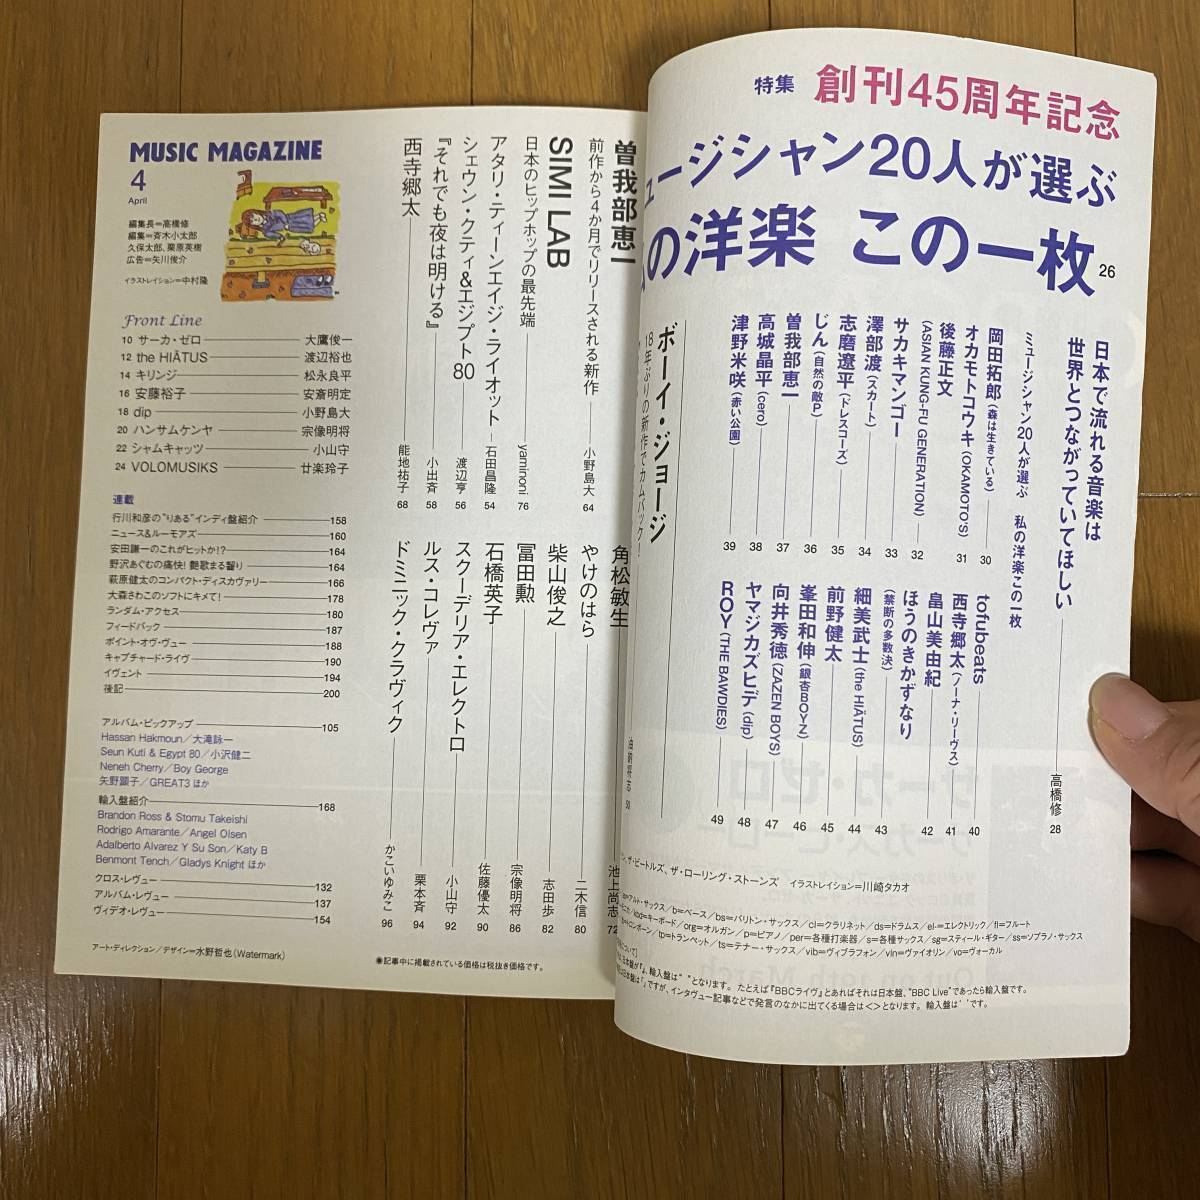 MUSIC MAGAZINE
4
April
編集長=高橋修
編集=斉木小太郎
久保太郎、栗原英樹
広告=矢川俊介
イラストレイション=中村隆
Front Line
10 サーカ・ゼロ 大鷹俊一
12 the HIATUS 渡辺裕也
14 キリンジ 松永良平
16 安藤裕子 安斎明定
18 dip 小野島大
20 ハンサムケンヤ 宗像明将
22 シャムキャッツ 小山守
24 VOLOMUSIKS 廿楽玲子
連載
行川和彦の“りある”インディ盤紹介 158
ニュース&ルーモアズ 160
安田謙一のこれがヒットか!? 164
野沢あぐむの痛快! 艶歌まる齧り 164
萩原健太のコンパクト・ディスカヴァリー 166
大森さわこのソフトにキメて! 178
ランダム・アクセス 180
フィードバック 187
ポイント・オヴ・ヴュー 188
キャプチャード・ライヴ 190
イヴェント 194
後記 200
アルバム・ピックアップ 105
Hassan Hakmoun/大滝詠一
Seun Kuti & Egypt 80/小沢健二
Neneh Cherry/Boy George
矢野顕子/GREAT3 ほか
輸入盤紹介 168
Brandon Ross & Stomu Takeishi
Rodrigo Amarante/Angel Olsen
Adalberto Alvarez Y Su Son/Katy B
Benmont Tench/Gladys Knight ほか
クロス・レヴュー 132
アルバム・レヴュー 137
ヴィデオ・レヴュー 154
アート・ディレクション/デザイン=水野哲也(Watermark)
曽我部恵一
前作から4か月でリリースされる新作 小野島大 64
SIMI LAB
日本のヒップホップの最先端 yaminoni 76
アタリ・ティーンエイジ・ライオット 石田昌隆 54
シェウン・クティ&エジプト80 渡辺亨 56
『それでも夜は明ける』 小出斉 58
西寺郷太 能地祐子 68
角松敏生 池上尚志 72
やけのはら 二木信 80
柴山俊之 志田歩 82
冨田勲 宗像明将 86
石橋英子 佐藤優太 90
スクーデリア・エレクトロ 小山守 92
ルス・コレヴァ 栗本斉 94
ドミニック・クラヴィク かこいゆみこ 96
◉記事中に掲載されている価格は税抜き価格です。
特集 創刊45周年記念
ュージシャン20人が選ぶ
の洋楽 この一枚 26
日本で流れる音楽は
世界とつながっていてほしい 高橋修 28
ミュージシャン20人が選ぶ 私の洋楽この一枚
岡田拓郎(森は生きている) 30
オカモトコウキ(OKAMOTO'S) 31
後藤正文
(ASIAN KUNG-FU GENERATION) 32
サカキマンゴー 33
澤部渡(スカート) 34
志磨遼平(ドレスコーズ) 35
じん(自然の敵P) 36
曽我部恵一 37
高城晶平(cero) 38
津野米咲(赤い公園) 39
tofubeats 40
西寺郷太(ノーナ・リーヴス) 41
畠山美由紀 42
ほうのきかずなり
(禁断の多数決) 43
細美武士(the HIATUS) 44
前野健太 45
峯田和伸(銀杏BOYZ) 46
向井秀徳(ZAZEN BOYS) 47
ヤマジカズヒデ(dip) 48
ROY(THE BAWDIES) 49
ボーイ・ジョージ
18年ぶりの新作でカムバック! 50
ザ・ビートルズ、ザ・ローリング・ストーンズ イラストレイション=川崎タカオ
=アルト・サックス/b=ベース/bs=バリトン・サックス/cl=クラリネット/ds=ドラムス/el-=エレクトリック/fl=フルート
kbd=キーボード/org=オルガン/p=ピアノ/per=各種打楽器/s=各種サックス/sg=スティール・ギター/ss=ソプラノ・サックス
トロンボーン/tp=トランペット/ts=テナー・サックス/vib=ヴィブラフォン/vln=ヴァイオリン/vo=ヴォーカル
輸入盤は“ ”となります。たとえば『BBCライヴ』とあればそれは日本盤、“BBC Live”であったら輸入盤です。
ですが、インタヴュー記事などで発言のなかに出てくる場合は<>となります。輸入盤は‘ ’です。